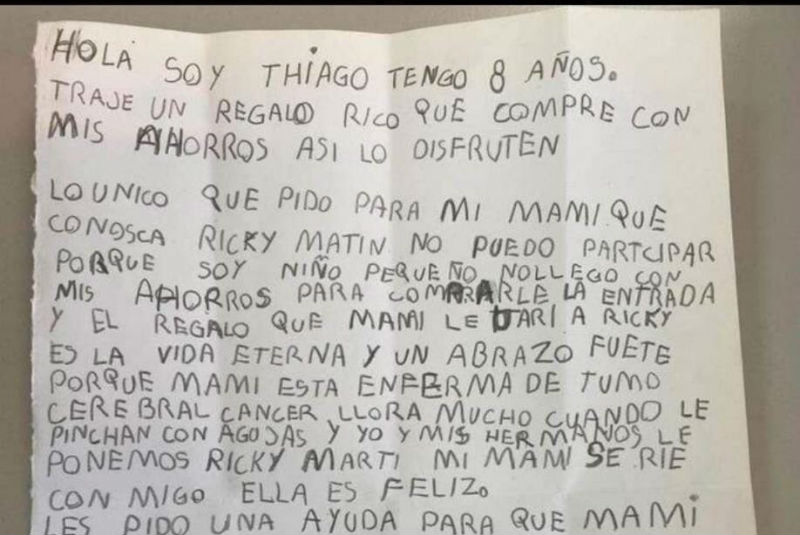 HOLA SOY THIAGO TENGO 8 AÑOS.
TRAJE UN REGALO RICO QUE COMPRE CON
MIS AHORROS ASI LO DISFRUTEN
LO UNICO QUE PIDO PARA MI MAMI QUE
CONOSCA RICKY MATIN NO PUEDO PARTCIPAR
PORQUE SOY NIÑO PEQUEÑO NOLLEGO CON
MIS AHORROS PARA COMPRARLE LA ENTRADA
Y EL REGALO QUE MAMI LE DARI A RICKY
ES LA VIDA ETERNA Y UN ABRAZO FUETE
PORQUE MAMI ESTA ENFERMA DE TUMO
CEREBRAL CANCER LLORA MUCHO CUANDO LE
PINCHAN CON AGUJAS Y YO Y MIS HERMANOS LE
PONEMOS RICKY MARTI MI MAMI SE RIE
CON MIGO ELLA ES FELIZ.
LES PIDO UNA AYUDA PARA QUE MAMI